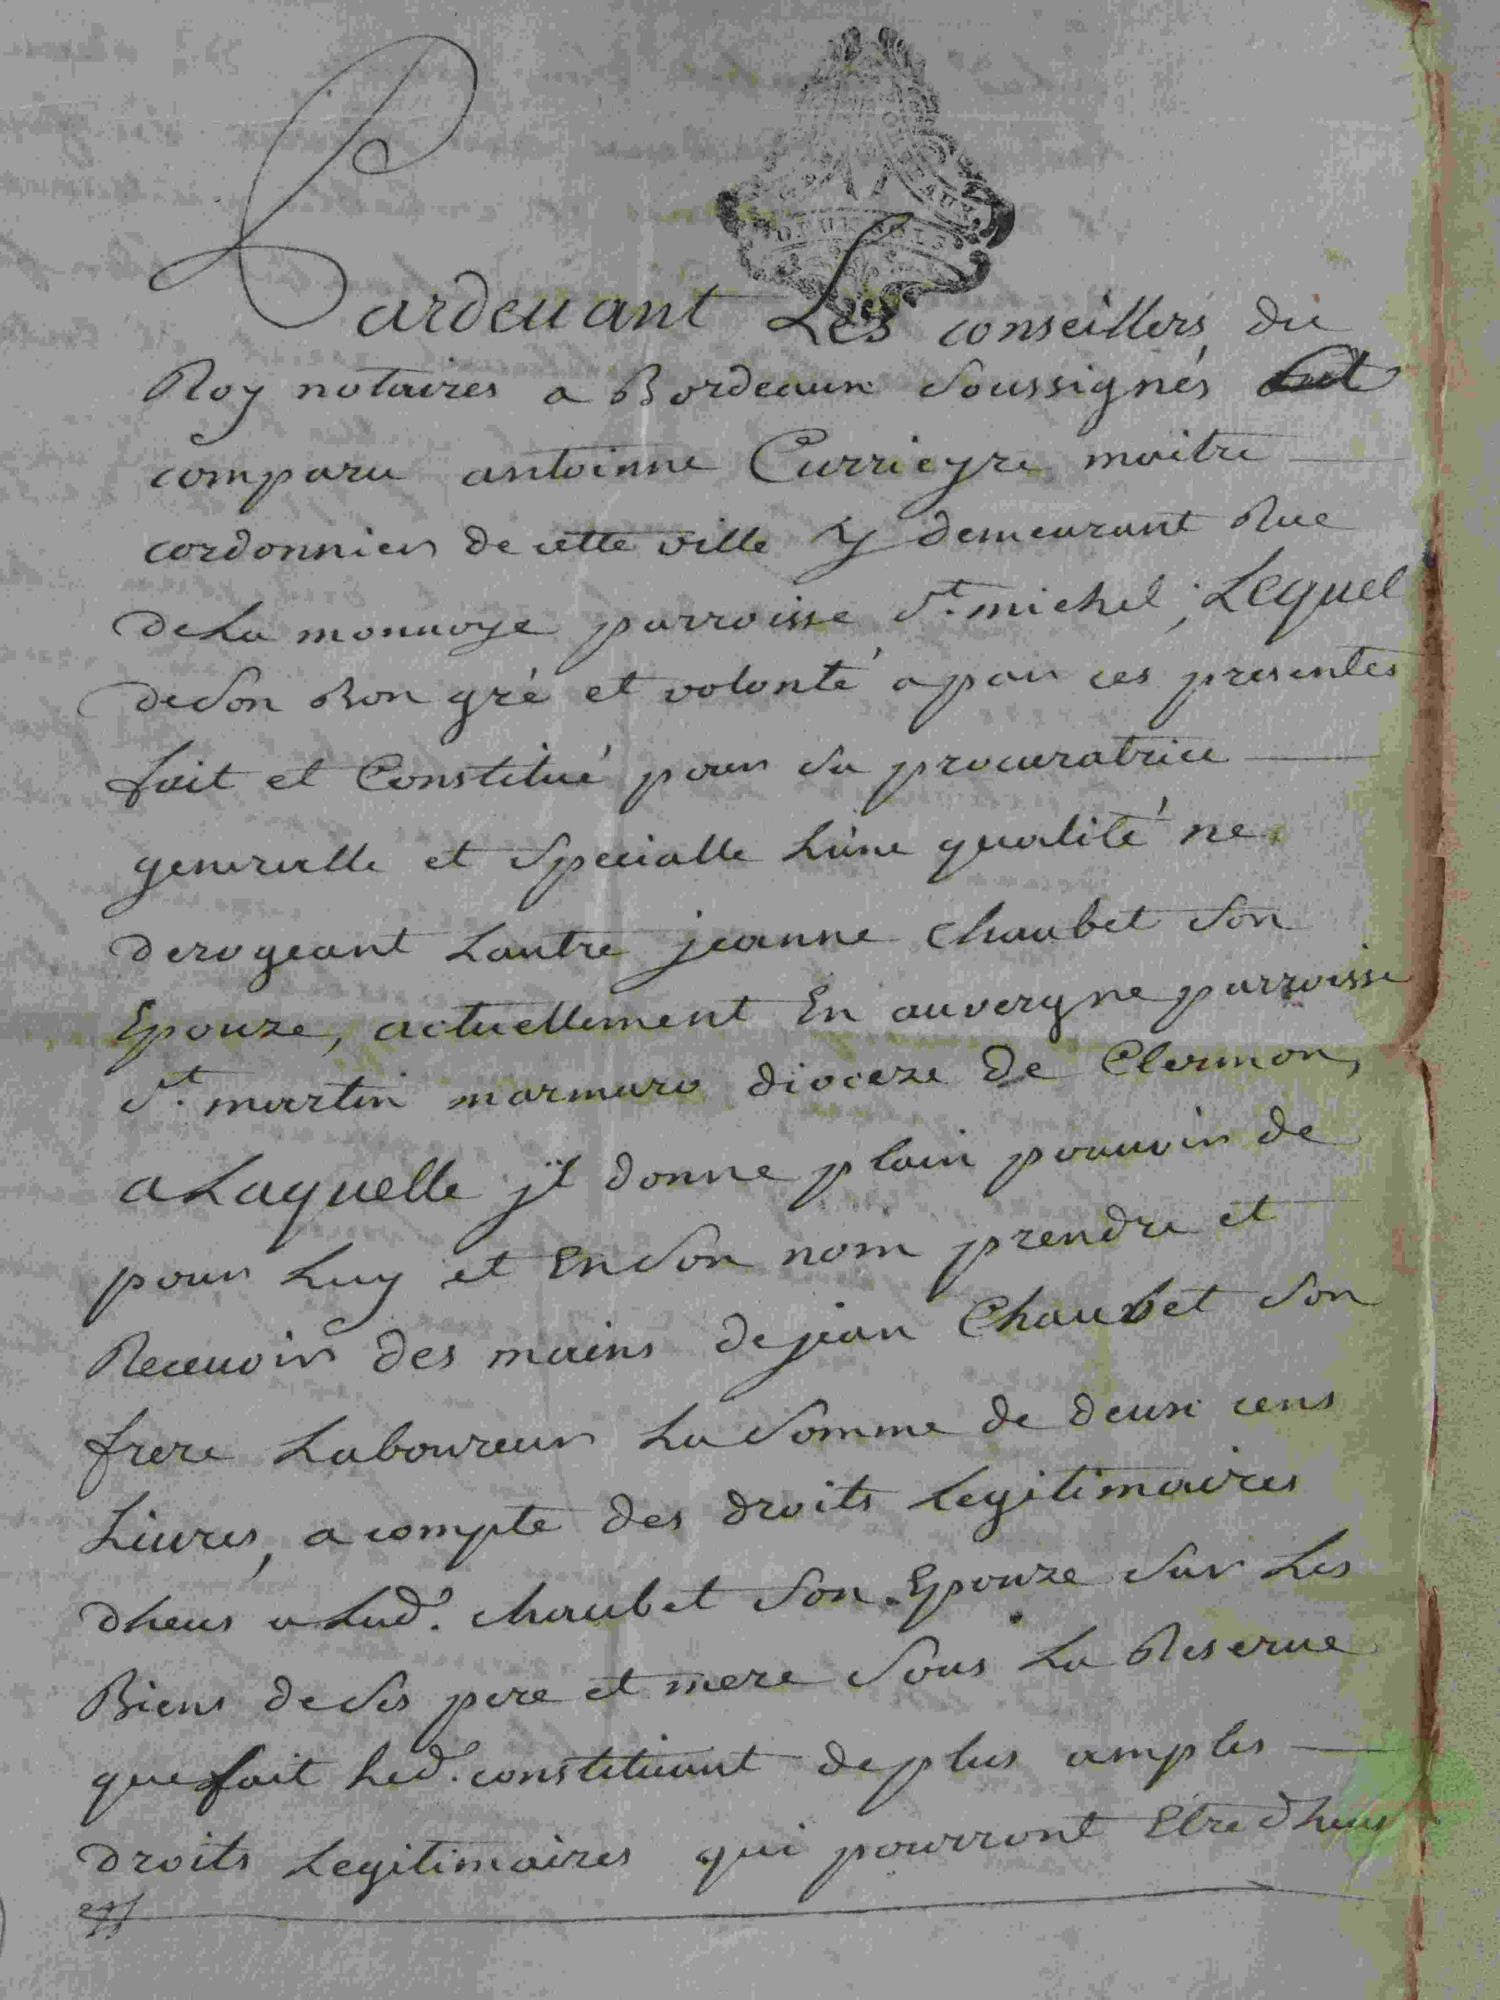 Pardeuant Les conseillers du
Roy notaires a Bordeaux Soussignés
comparu antoinne Currieyre maitre
cordonnier de cette ville y demeurant Rue
de La monnoye parroisse St. michel; Lequel
de Son Bon gré et volonté a par ces presentes
fait et Constitué pour Sa procuratrice
generalle et Specialle L'une qualité ne
derogeant Lautre jeanne Chaubet Son
Epouze, actuellement En auvergne parroisse
St. martin marmaro dioceze de Clermon,
a Laquelle jl donne plain pouuoir de
pour Luy et En Son nom prendre et
Receuoir des mains de jean Chaubet Son
frere Laboureur La Somme de deux cens
Liures, a compte des droits Legitimaires
dheus a Lad. chaubet Son Epouze Sur Les
Biens de Ses pere et mere Sous La Reserue
que fait Led. constituant de plus amples
droits Legitimaires qui pourront Etre dheus